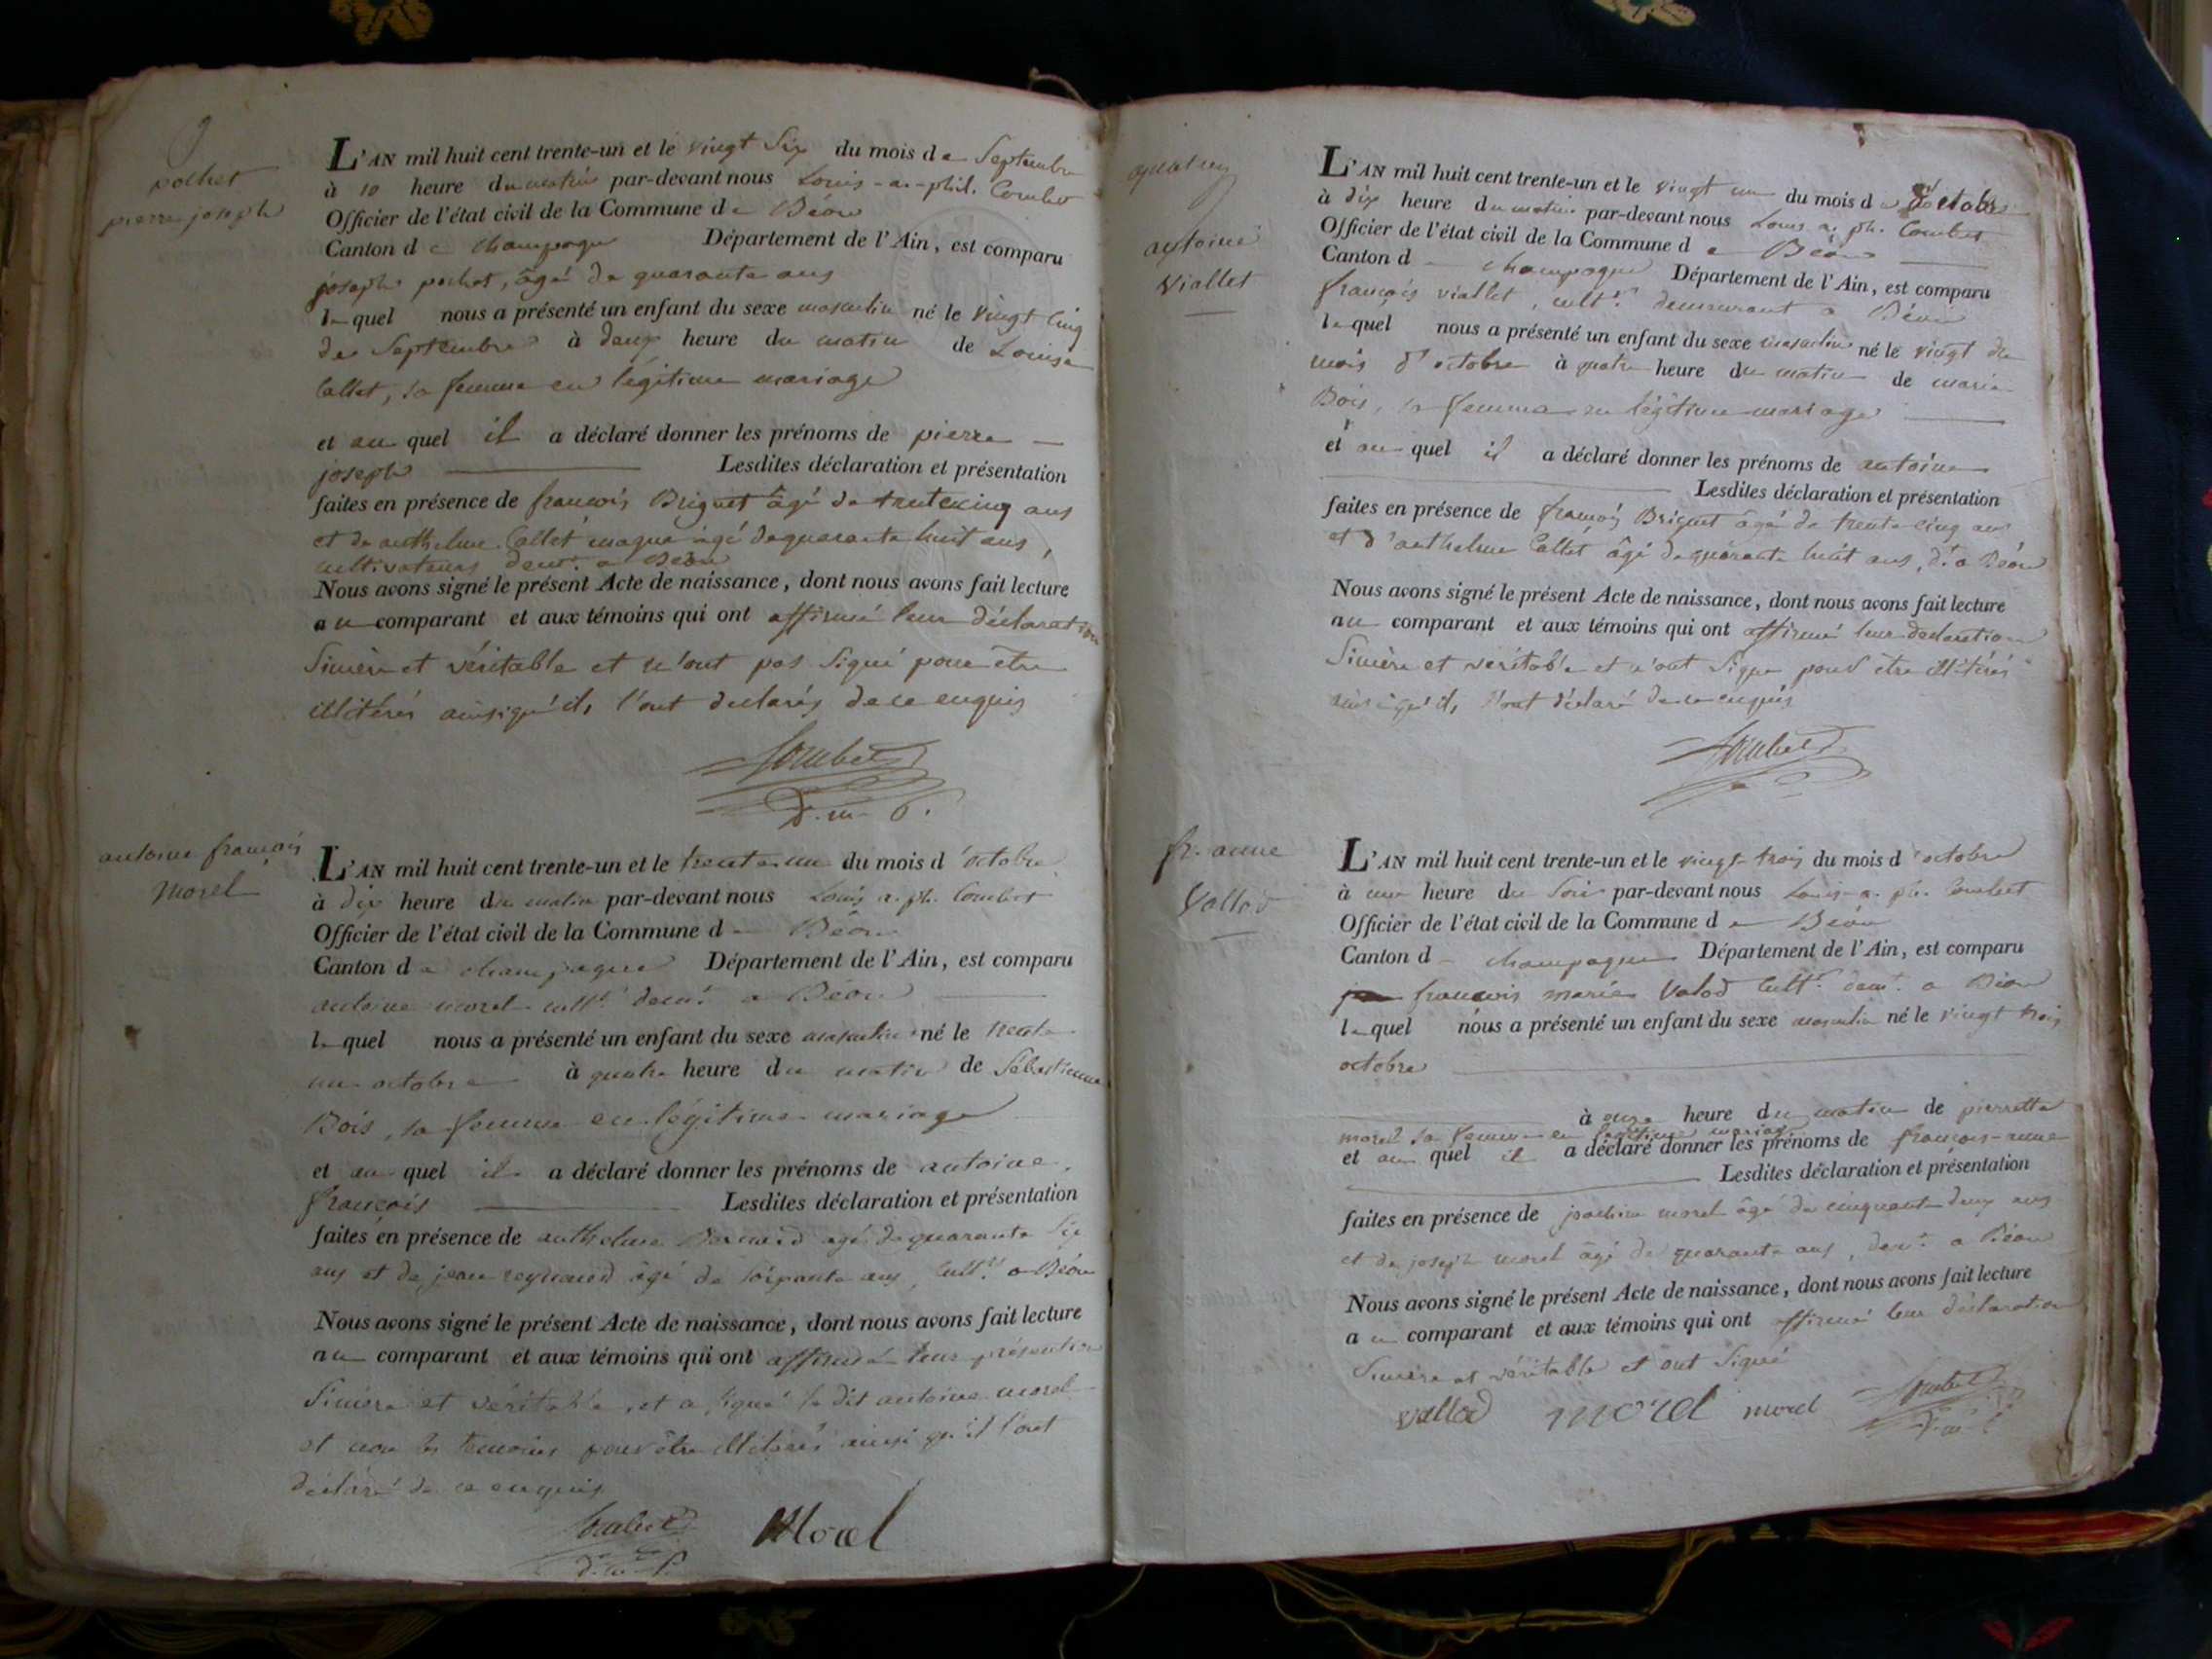 9
pochet
pierre joseph
L'AN mil huit cent trente-un et le vingt Six du mois de Septembre
à 10 heure du matin par-devant nous Louis-a.-phil. Combet
Officier de l'état civil de la Commune de Béon
Canton de Champagne Département de l'Ain, est comparu
joseph pochet, âgé de quarante ans
lequel nous a présenté un enfant du sexe masculin né le vingt cinq
de Septembre à deux heure du matin de Louise
Callet, sa femme en légitime mariage
et au quel il a déclaré donner les prénoms de pierre
joseph Lesdites déclaration et présentation
faites en présence de françois Briguet âgé de trente cinq ans
et de anthelme Callet âgé de quarante huit ans,
cultivateurs demt. a Béon
Nous avons signé le présent Acte de naissance, dont nous avons fait lecture
au comparant et aux témoins qui ont affirmé leur déclaration
Sincère et véritable et n'ont pas Signé pour être
illitérés ainsi qu'ils l'ont declarés de ce enquis
Combet
d.m.p.
antoine françois
morel
L'AN mil huit cent trente-un et le trente un du mois d'octobre
à dix heure du matin par-devant nous Louis a. ph. Combet
Officier de l'état civil de la Commune de Béon
Canton de champagne Département de l'Ain, est comparu
antoine morel cultr. demt. a Béon
lequel nous a présenté un enfant du sexe masculin né le trente
un octobre à quatre heure du matin de Sébastienne
Bois, sa femme en légitime mariage
et au quel il a déclaré donner les prénoms de antoine,
françois Lesdites déclaration et présentation
faites en présence de anthelme âgé de quarante Six
ans et de jean reynaud âgé de soixante ans, cultrs. a Béon
Nous avons signé le présent Acte de naissance, dont nous avons fait lecture
au comparant et aux témoins qui ont affirmé leur présentation
Sincère et véritable, et a signé le dit antoine morel
et non les temoins pour être illitérés ainsi qu'il l'ont
déclaré de ce enquis
Combet
Morel
d.m.p.
antoine
Viallet
L'AN mil huit cent trente-un et le vingt un du mois d'octobre
à dix heure du matin par-devant nous Louis a. ph. Combet
Officier de l'état civil de la Commune de Béon
Canton de champagne Département de l'Ain, est comparu
françois viallet, cultr. demeurant a Béon
lequel nous a présenté un enfant du sexe masculin né le vingt du
mois d'octobre à quatre heure du matin de marie
Bois, sa femme en légitime mariage
et au quel il a déclaré donner les prénoms de antoine
Lesdites déclaration et présentation
faites en présence de françois Briguet âgé de trente cinq ans
et d'anthelme Callet âgé de quarante huit ans, dt. a Béon
Nous avons signé le présent Acte de naissance, dont nous avons fait lecture
au comparant et aux témoins qui ont affirmé leur declaration
Sincère et véritable et n'ont Signe pour être illitérés
ainsi qu'ils l'ont déclaré de ce enquis
Combet
fr. anne
Vallod
L'AN mil huit cent trente-un et le vingt-trois du mois d'octobre
à une heure du soir par-devant nous Louis-a. ph. Combet
Officier de l'état civil de la Commune de Béon
Canton de champagne Département de l'Ain, est comparu
françois marie Valod Cultr. demt. a Béon
lequel nous a présenté un enfant du sexe masculin né le vingt trois
octobre
à onze heure du matin de pierrette
morel sa femme en légitime mariage
et au quel il a déclaré donner les prénoms de françois-anne
Lesdites déclaration et présentation
faites en présence de joachim morel âgé de cinquante deux ans
et de joseph morel âgé de quarante ans, demt. a Béon
Nous avons signé le présent Acte de naissance, dont nous avons fait lecture
au comparant et aux témoins qui ont affirmé leur déclaration
Sincère et véritable et ont Signé
vallod morel morel Combet
d.m.p.